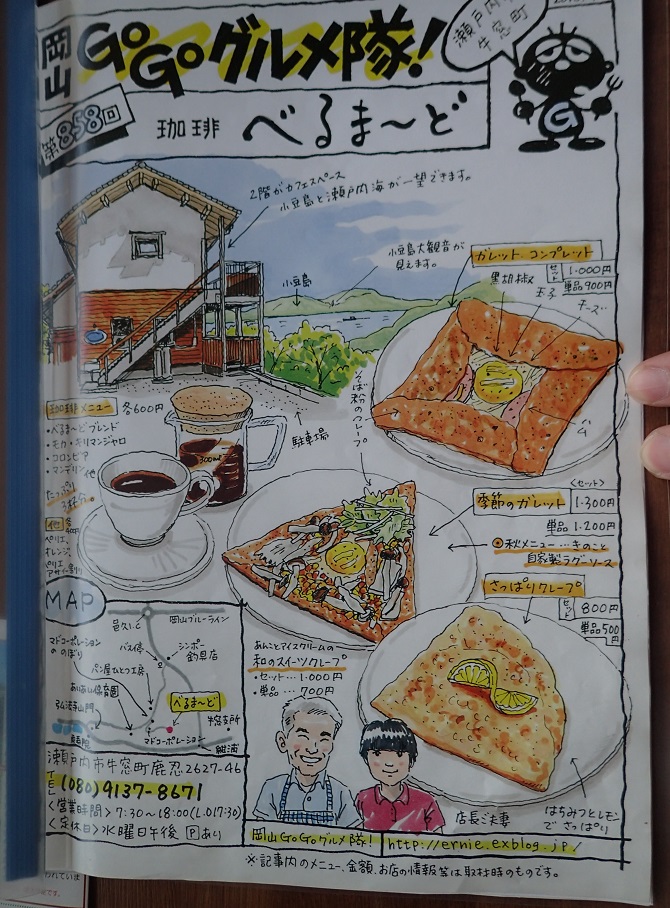 岡山 GoGoグルメ隊!
瀬戸内市
牛窓町
第858回
珈琲 べるま〜ど
2階がカフェスペース
小豆島と瀬戸内海が一望できます。
小豆島大観音が
見えます。
小豆島
ガレット コンプレット
セット 1.000円
単品900円
黒胡椒
玉子
チーズ
ハム
そば粉のクレープ
駐車場
珈琲メニュー 各600円
・べるま〜どブレンド
・モカ・キリマンジャロ
・コロンビア
・マンデリン他
たっぷり
3杯分。
300ml
他 各
ペリエ、
オレンジ、
<セット>
季節のガレット 1.300円
単品 1.200円
秋メニュー…きのこと
自家製ラグーソース
さっぱりクレープ
セット 800円
単品500円
はちみつとレモン
でさっぱり
あんことアイスクリームの
和のスイーツクレープ
・セット…1.000円
・単品…700円
店長ご夫妻
MAP
邑久I.C
岡山ブルーライン
マドコーポレーション
ののぼり
バス停
シンポー
釣具店
パン屋ひとつ工房
保育園
弘法寺山門
べるま〜ど
牛窓支所
マドコーポレーション
錦海
瀬戸内市牛窓町鹿忍2627-46
TEL (080)9137-8671
<営業時間>7:30〜18:00(L.O17:30)
<定休日>水曜日午後 Pあり
岡山GoGoグルメ隊! http://ernie.exblog.jp/
※記事内のメニュー、金額、お店の情報等は取材時のものです。